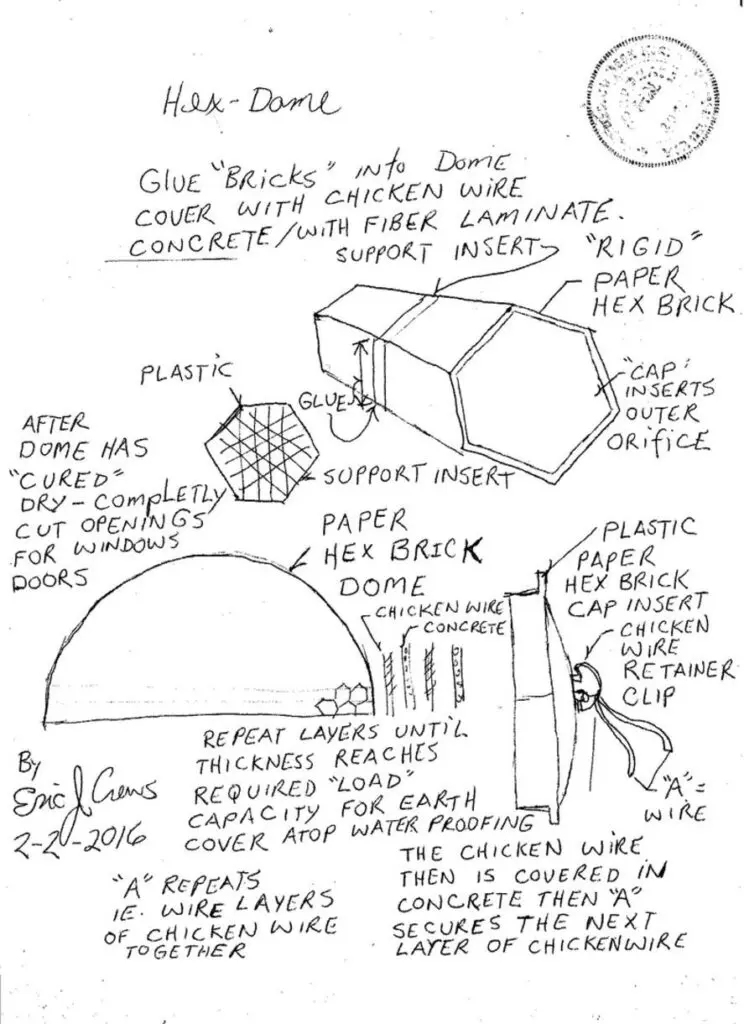 Hex-Dome
GLUE "BRICKS" INTO DOME
COVER WITH CHICKEN WIRE
CONCRETE/WITH FIBER LAMINATE.
SUPPORT INSERT
"RIGID"
PAPER
HEX BRICK
"CAP"
INSERTS
OUTER
ORIFICE
GLUE
PLASTIC
SUPPORT INSERT
AFTER
DOME HAS
"CURED"
DRY-COMPLETLY
CUT OPENINGS
FOR WINDOWS
DOORS
PAPER
HEX BRICK
DOME
CHICKEN WIRE
CONCRETE
PLASTIC
PAPER
HEX BRICK
CAP INSERT
CHICKEN
WIRE
RETAINER
CLIP
"A"=
WIRE
REPEAT LAYERS UNTIL
THICKNESS REACHES
REQUIRED "LOAD"
CAPACITY FOR EARTH
COVER ATOP WATER PROOFING
By
Eric J Crews
2-2-2016
"A" REPEATS
IE. WIRE LAYERS
OF CHICKEN WIRE
TOGETHER
THE CHICKEN WIRE
THEN IS COVERED IN
CONCRETE THEN "A"
SECURES THE NEXT
LAYER OF CHICKENWIRE